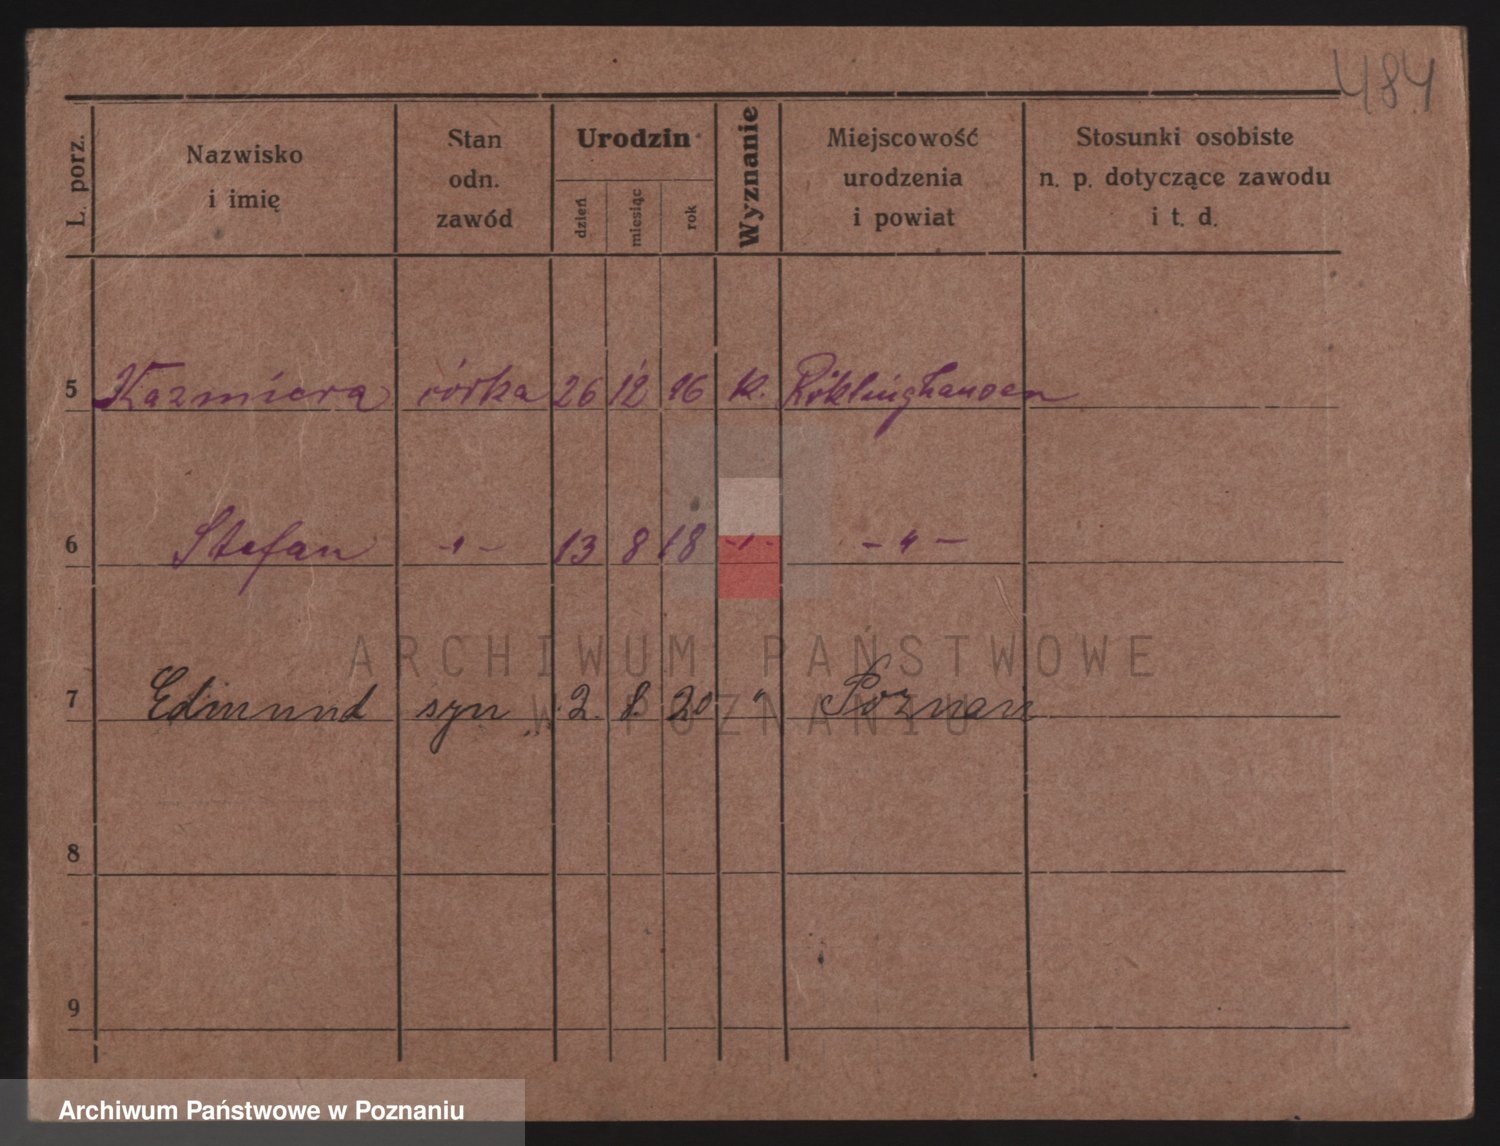 484
L. porz.
Nazwisko
i imię
Stan
odn.
zawód
Urodzin
dzień
miesiąc
rok
Wyznanie
Miejscowość
urodzenia
i powiat
Stosunki osobiste
n. p. dotyczące zawodu
i t. d.
5 Kazmiera córka 26 12 16 k. Röklinghausen
6 Stefan -"- 13 8 18 -"- -"-
7 Edmund syn 2. 8. 20 " Poznań
8
9
ARCHIWUM PAŃSTWOWE
W POZNANIU
Archiwum Państwowe w Poznaniu